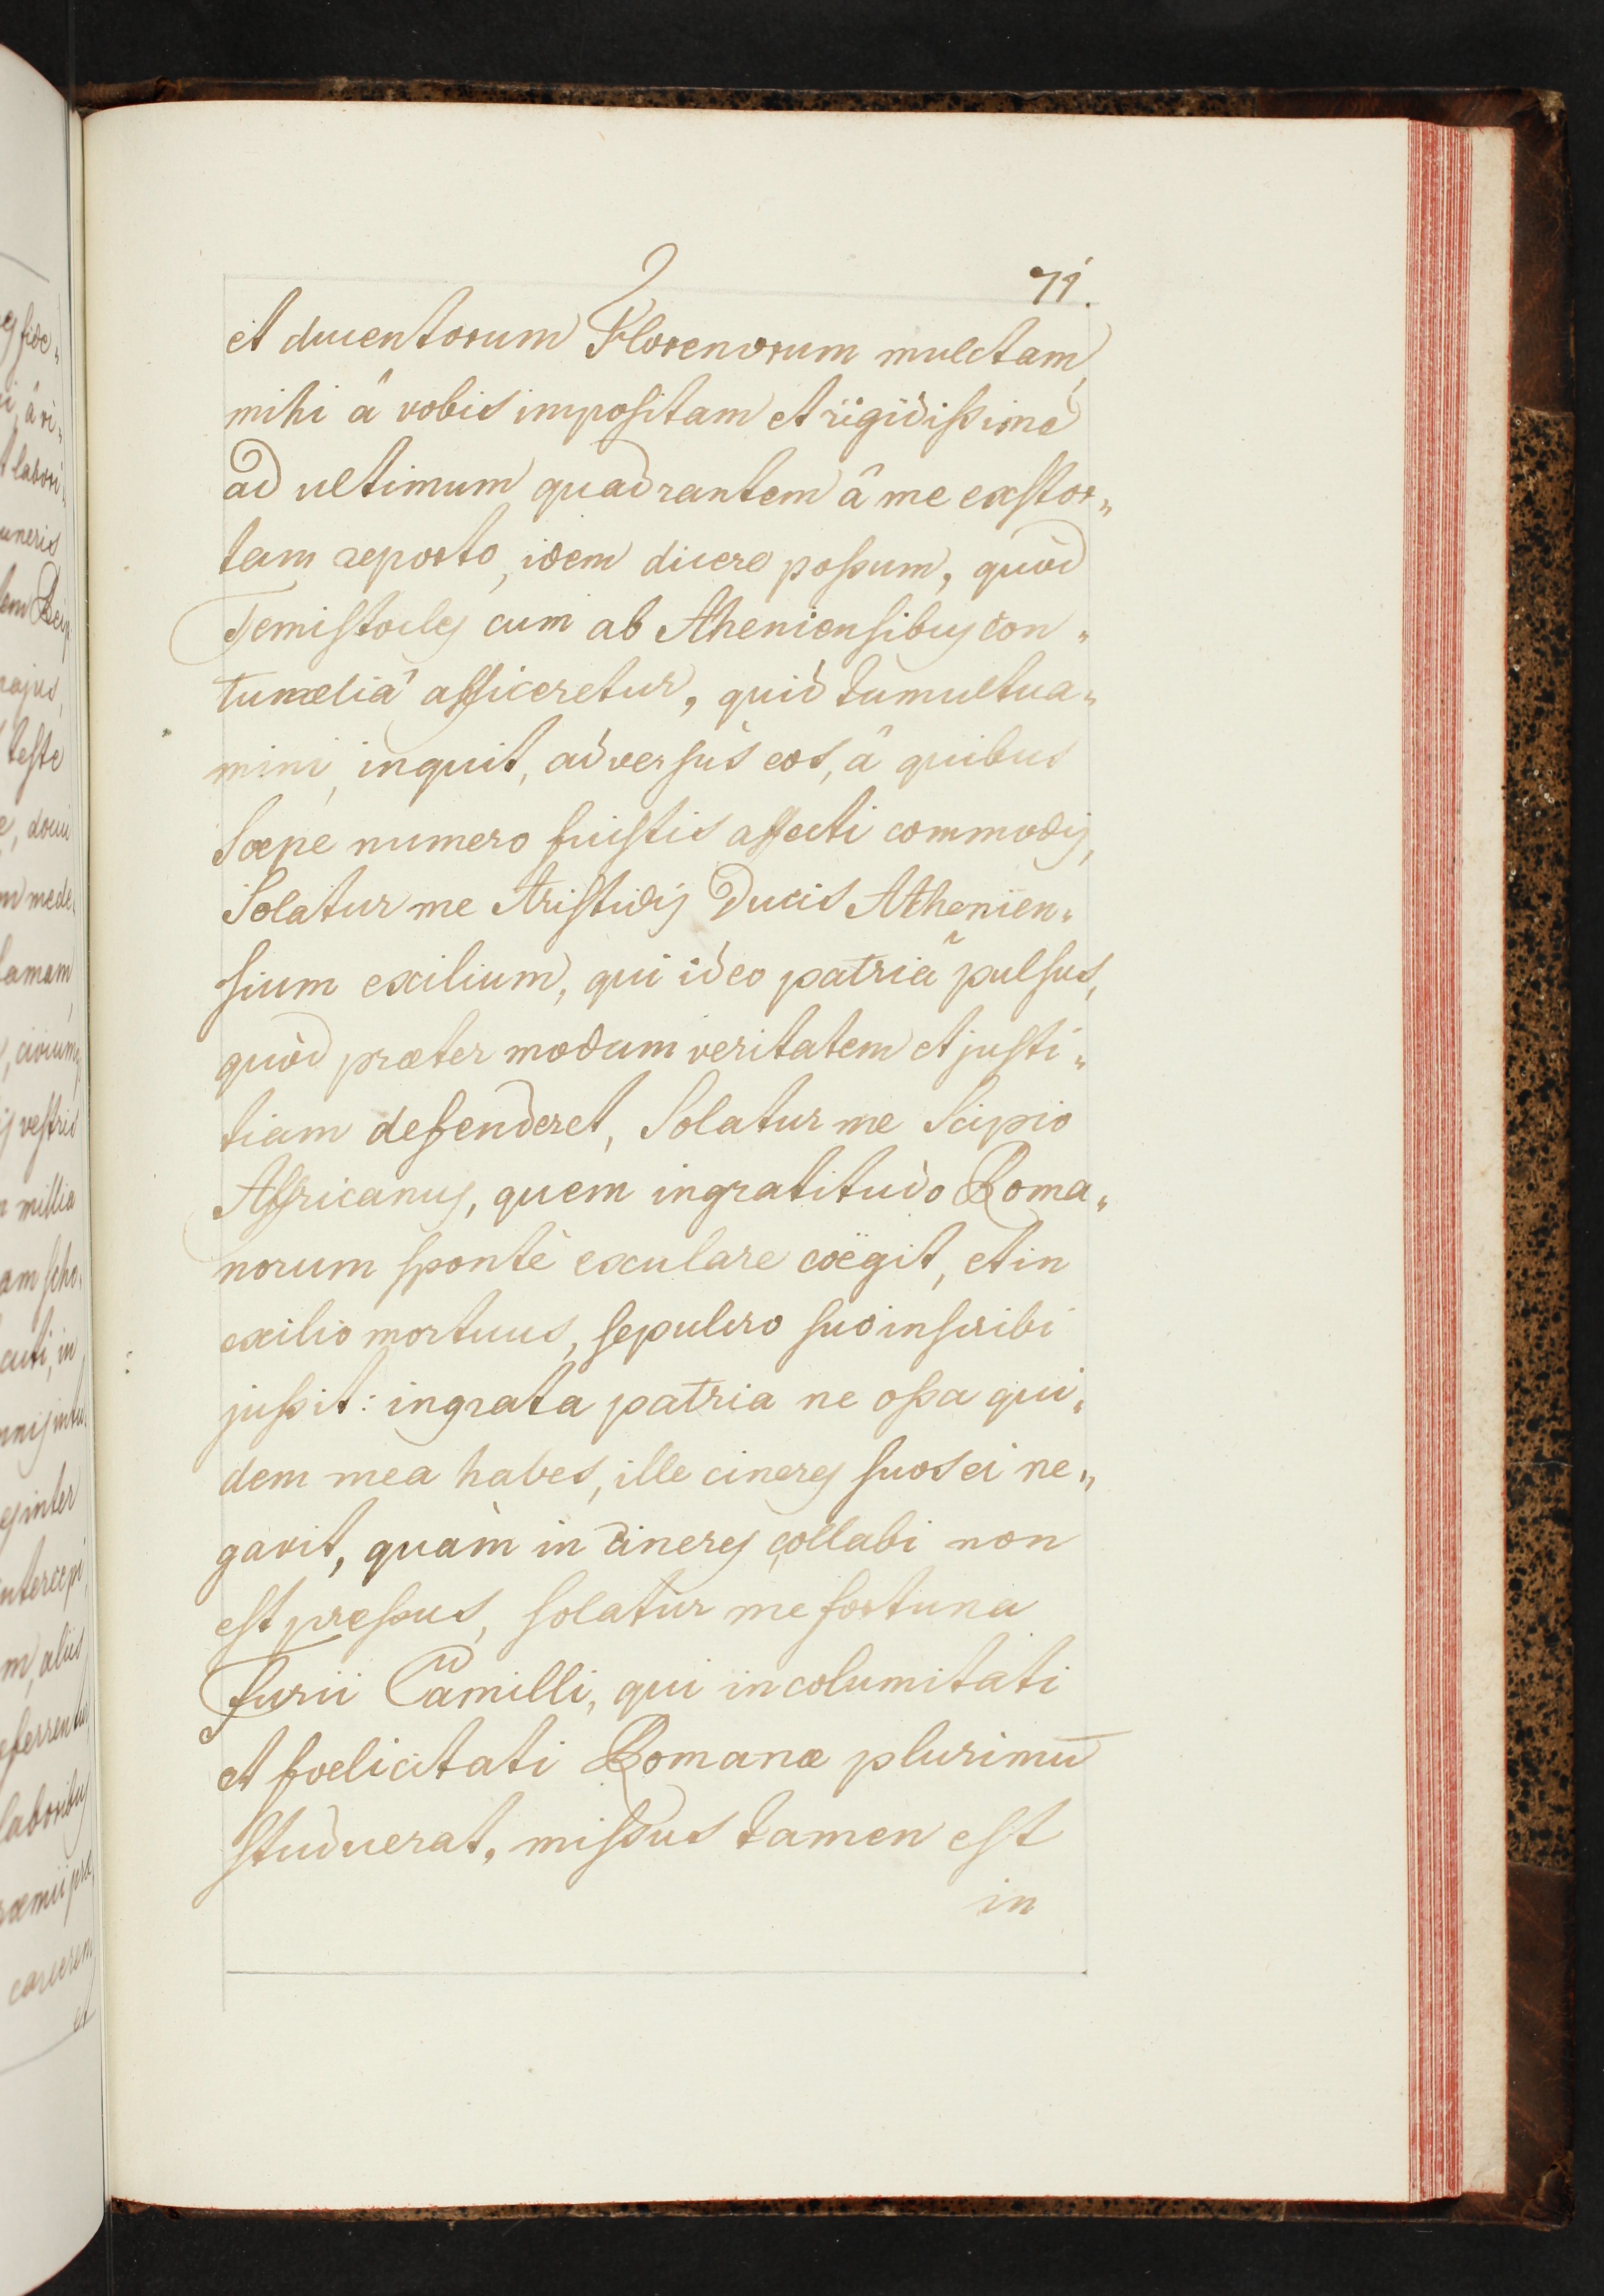 71.
et ducentorum Florenorum mulctam,
mihi â vobis impositam et rigidissimè
ad ultimum quadrantem â me exstor„
tam reporto, idem dicere possum, quòd
Temistocles cum ab Atheniensibus con„
tumeliâ afficeretur, quid tumultua„
mini, inquit, adversùs eos, â quibus
Sæpe numero fuistis affecti commodis,
Solatur me Aristidis Ducis Athenien„
sium exilium, qui ideo patriâ pulsus,
quòd præter modum veritatem et justi„
tiam defenderet, Solatur me Scipio
Affricanus, quem ingratitudo Roma„
norum spontè exulare coëgit, et in
exilio mortuus, sepulcro suo inscribi
jussit: ingrata patria ne ossa qui„
dem mea habes, ille cineres suos ei ne„
gavit, quàm in cineres collabi non
est pressus, solatur me fortuna
Furii Camilli, qui incolumitati
et fœlicitati Romanæ plurimū
studuerat, missus tamen est
in
fide„
â vi„
labori„
uneris
lem
teste
mede„
civium
vestris
millia
scho„
in
inter
intercepi
m, aliis
laboribus
carcerem
et